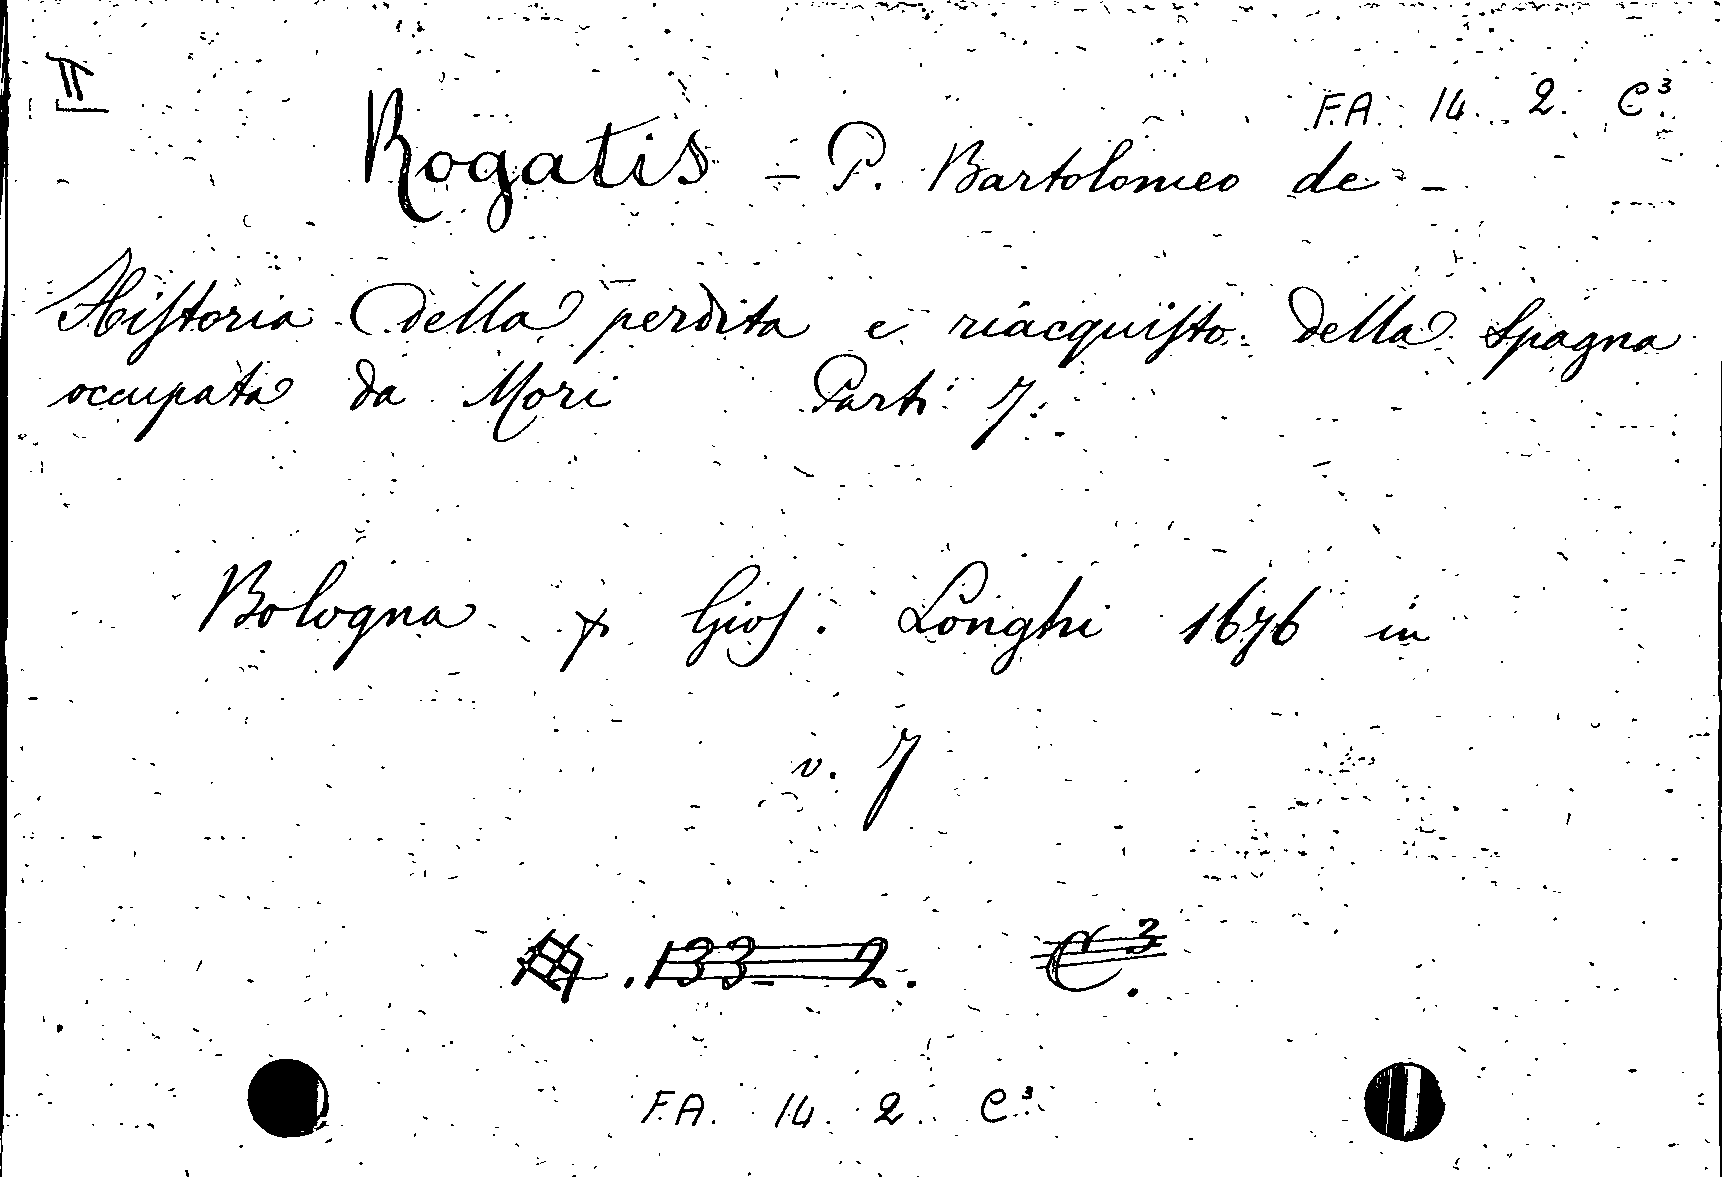 II
F.A. 14. 2. C³.
Rogatis - P. Bartolomeo de -
Historia della perdita e riacquisto della Spagna
occupata da Mori Parti 7.
Bologna p Gios. Longhi 1676 in
v. 7
. 133 - 2. C³.
F.A. 14. 2. C³.